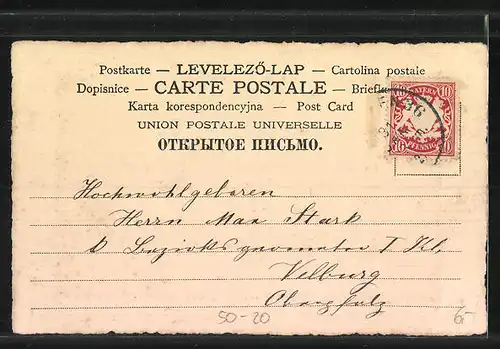 Postkarte — LEVELEZŐ-LAP — Cartolina postale
Dopisnice — CARTE POSTALE — Briefka
Karta korespondencyjna — Post Card
UNION POSTALE UNIVERSELLE
ОТКРЫТОЕ ПИСЬМО.
10 BAYERN 10
10 PFENNIG 10
Hochwohlgeboren
Herrn Max Stark
k Bezirksgeometer I Kl.
Velburg
Oberpfalz
50-20
6-